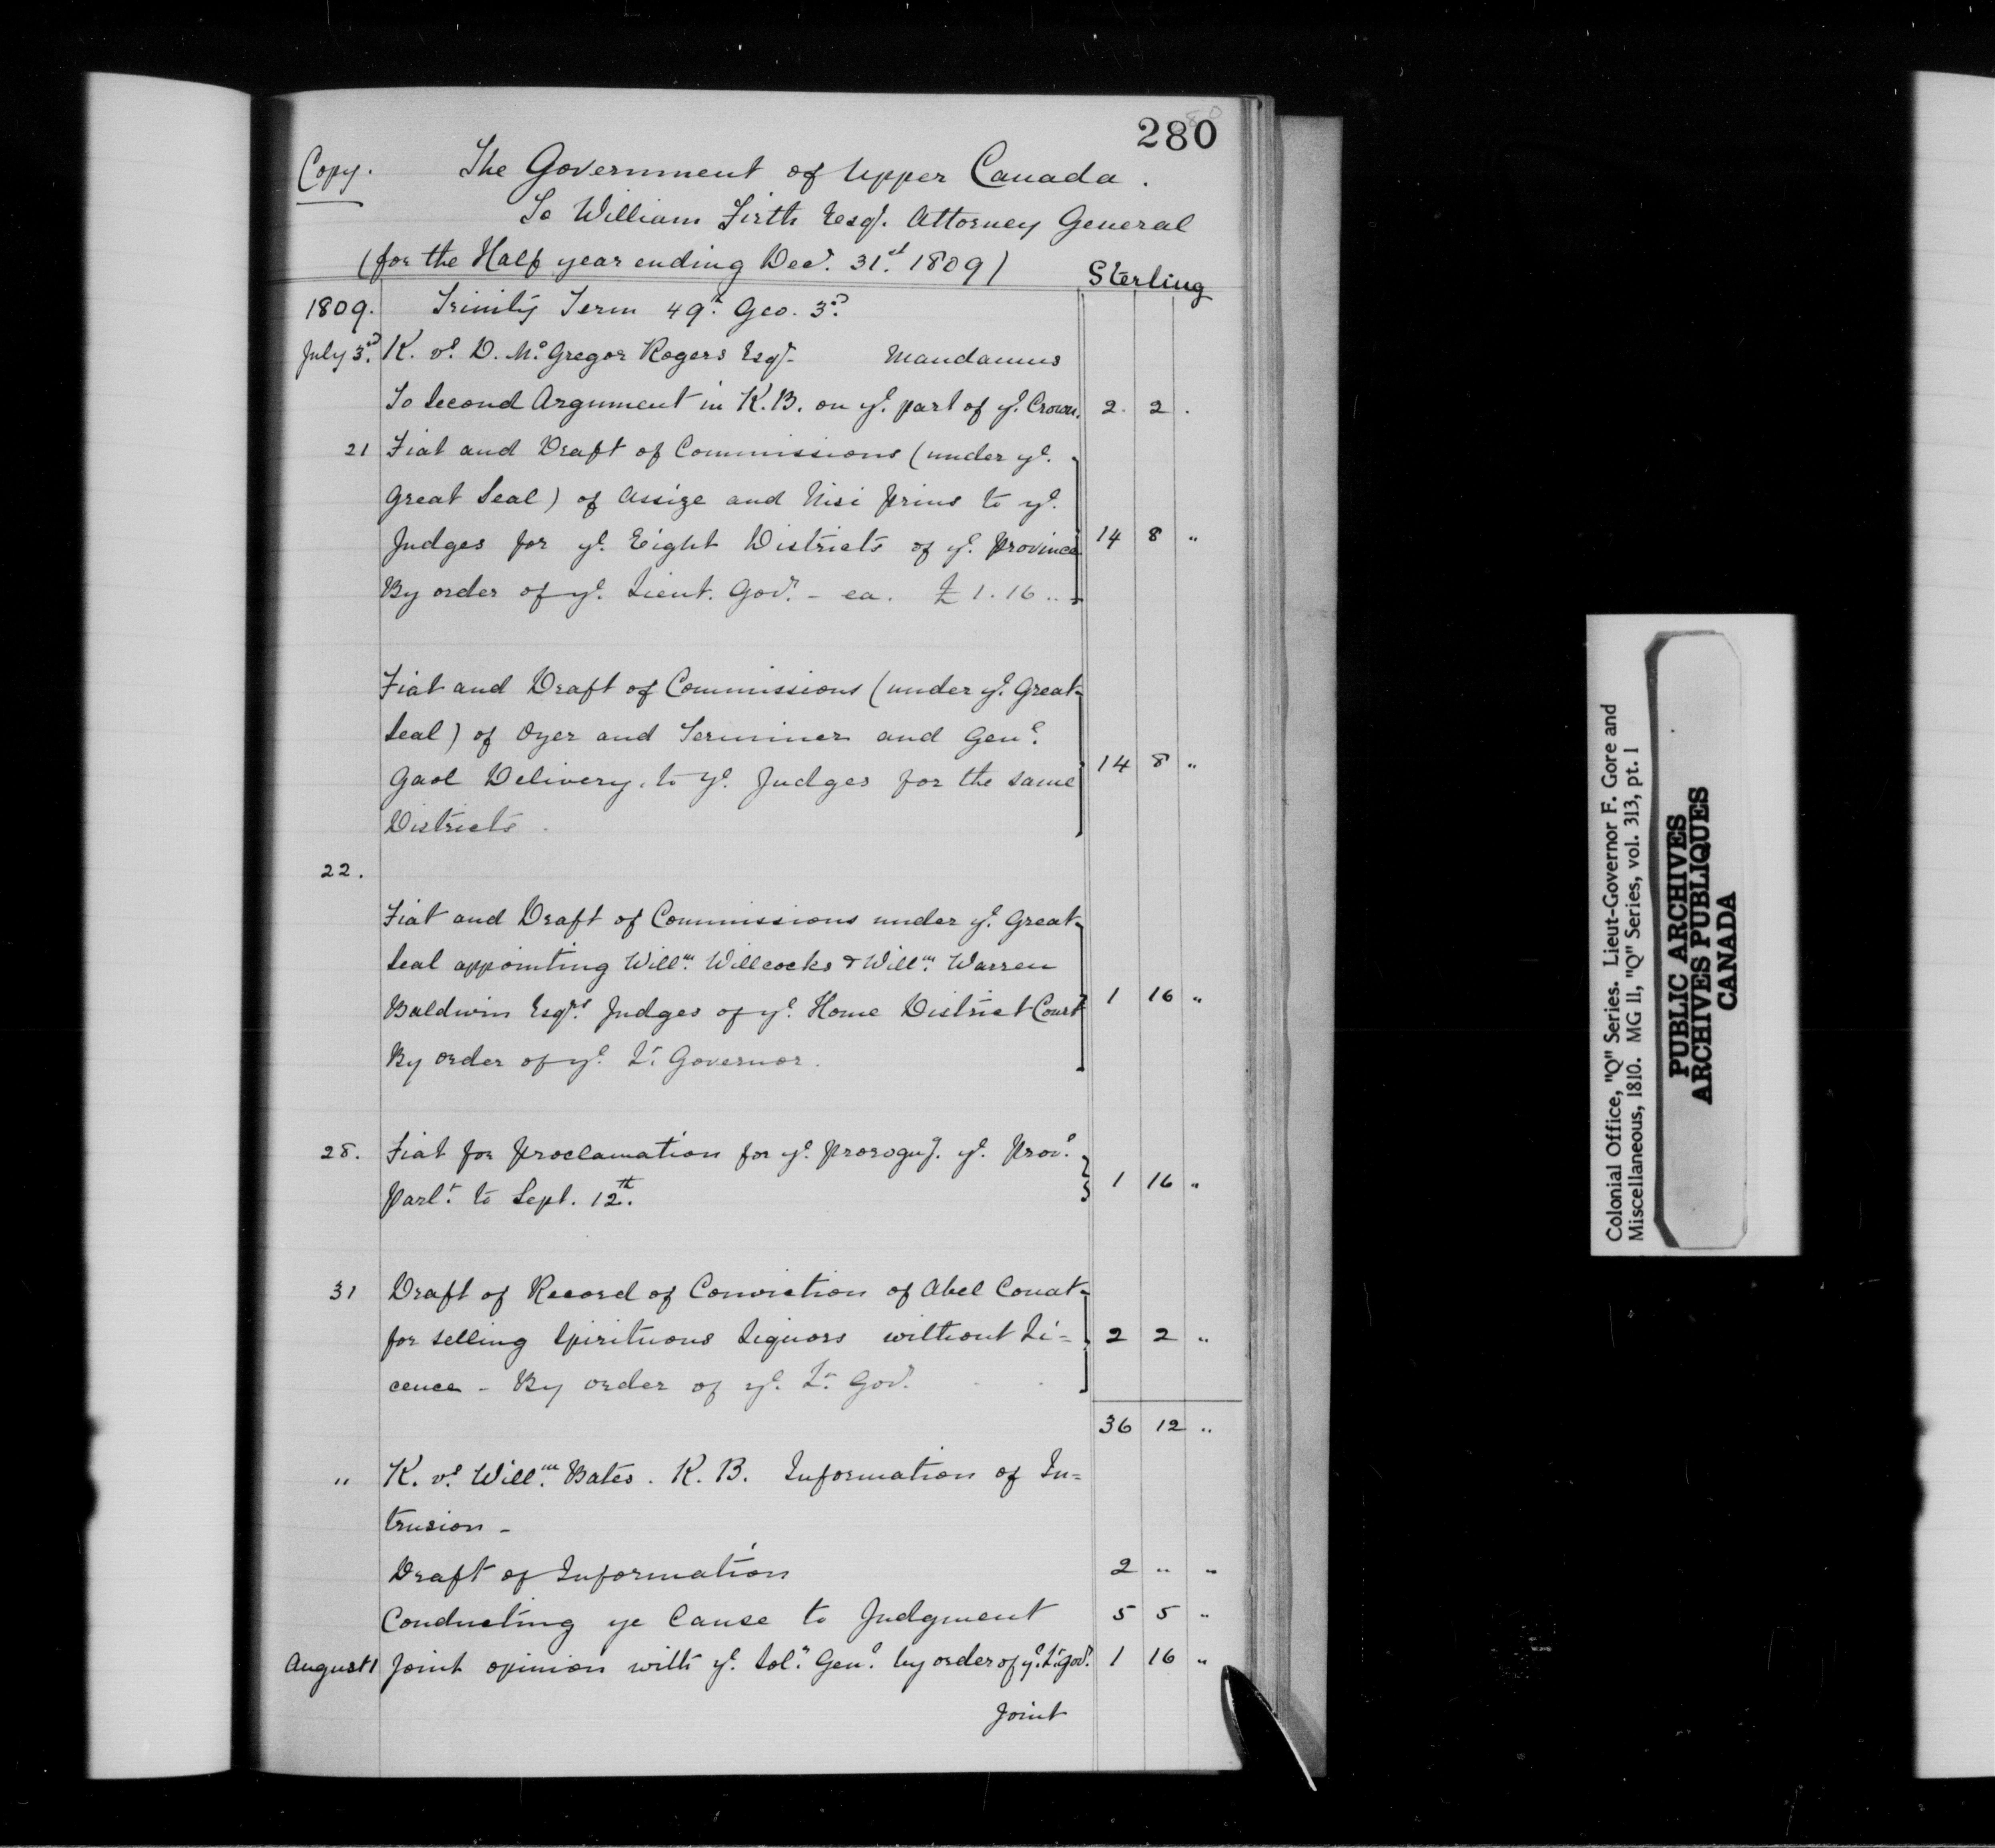 280
Copy. The Government of Upper Canada.
To William Firth Esqr. Attorney General
(for the Half year ending Decr. 31st. 1809)
Sterling
1809. Trinity Term 49th. Geo. 3d.
July 3d. K. vs. D. McGregor Rogers Esqr. Mandamus
To Second Argument in K.B. on ye. part of ye. Crown. 2. 2 .
21 Fiat and Draft of Commissions (under ye.
Great Seal) of Assize and Nisi Prius to ye.
Judges for ye. Eight Districts of ye. Province 14 8 "
By order of ye. Lieut. Govr. - ea. £ 1. 16 ..
Fiat and Draft of Commissions (under ye. Great
Seal) of Oyer and Terminer and Genl.
Gaol Delivery, to ye. Judges for the same 14 8 "
Districts.
22.
Fiat and Draft of Commissions under ye. Great
Seal appointing Willm. Willcocks & Willm. Warren
Baldwin Esqrs. Judges of ye. Home District Court 1 16 "
By order of ye. Lt. Governor.
28. Fiat for Proclamation for ye. prorogug. ye. Provl.
Parlt. to Sept. 12th. 1 16 "
31 Draft of Record of Conviction of Abel Conat
for selling Spirituous Liquors without Li= 2 2 "
cence - By order of ye. Lt. Govr.
36 12 "
" K. vs. Willm. Bates. K. B. Information of In=
trusion -
Draft of Information 2 " "
Conducting ye Cause to Judgment 5 5 "
August 1 Joint opinion with ye. Solr. Genl. by order of ye. Lt. Govr. 1 16 "
Joint
Colonial Office, "Q" Series. Lieut-Governor F. Gore and
Miscellaneous, 1810. MG 11, "Q" Series, vol. 313, pt. 1
PUBLIC ARCHIVES
ARCHIVES PUBLIQUES
CANADA